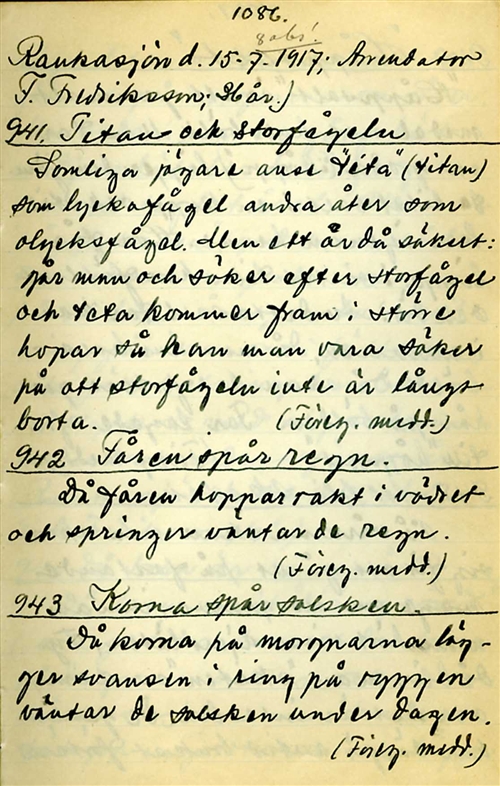 1086.
8 abs!
Raukasjön d. 15-7-1917; Arrendator
F. Fredriksson; 36 år.)
941. Titan och storfågeln
Somliga jägare anse "téta" (titan)
som lyckofågel andra åter som
olycksfågel. Men ett är då säkert:
går man och söker efter storfågel
och teta kommer fram i större
hopar så kan man vara säker
på att storfågeln inte är långt
borta. (Föreg. medd.)
942 Fåren spår regn.
Då fåren hoppar rakt i vädret
och springer väntar de regn.
(Föreg. medd.)
943 Korna spår solsken.
Då korna på morgnarna läg-
ger svansen i ring på ryggen
väntar de solsken under dagen.
(Föreg. medd.)